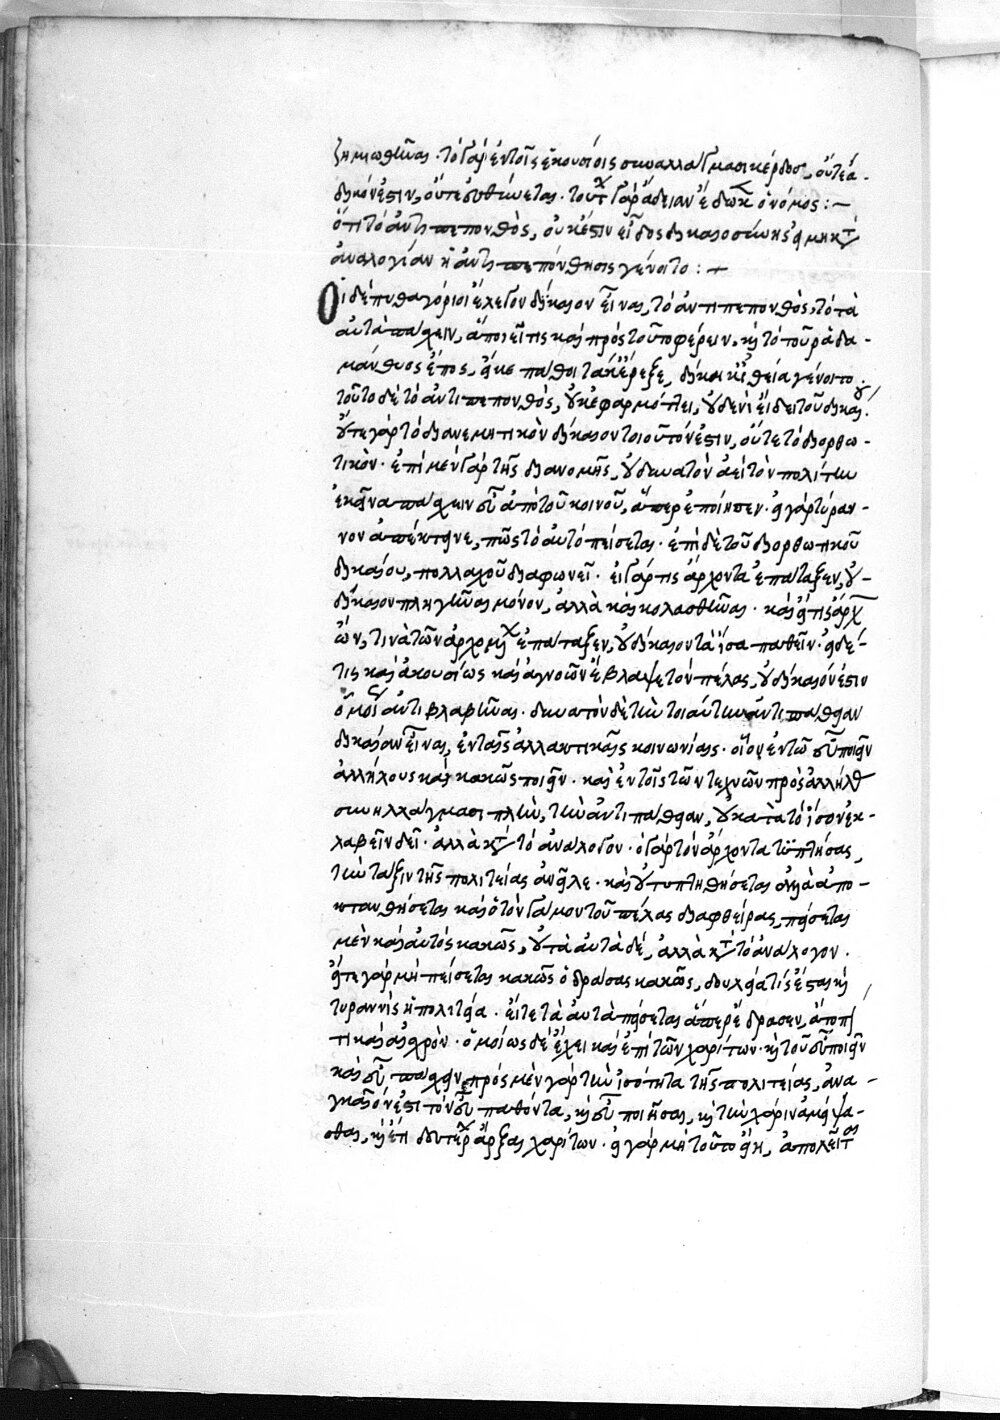 ζημιωθῆναι. τὸ γὰρ ἐν τοῖς ἑκουσίοις συναλλάγμασι κέρδος, οὔτε ἄ-
δικόν ἐστιν, οὔτε εὐθύνεται. τούτ γὰρ ἄδειαν ἔδωκ ὁ νόμος :—
ὅτι τὸ ἀντιπεπονθὸς, οὐκ ἔστιν εἶδος δικαιοσύνης εἰ μὴ κτ
ἀναλογίαν ἡ ἀντιπεπόνθησις γένοιτο : +
Οἱ δὲ πυθαγόριοι ἔλεγον δίκαιον εἶναι, τὸ ἀντιπεπονθὸς, τὸ τὰ
αὐτὰ πάσχειν, ἅ ποιεῖ τις καὶ πρὸς τοῦτο φέρειν. καὶ τὸ τοῦ ῥαδα-
μάνθυος ἔπος, εἴκε πάθοι τά κ' ἔρεξε, δίκη κ' ἰθεῖα γένοιτο.
τοῦτο δὲ τὸ ἀντιπεπονθὸς, οὐκ ἐφαρμόττει, οὐδενὶ εἴδει τοῦ δικαίου.
οὔτε γὰρ τὸ διανεμητικὸν δίκαιον τοιοῦτόν ἐστιν, οὔτε τὸ διορθω-
τικόν. ἐπὶ μὲν γὰρ τῆς διανομῆς, οὐ δυνατὸν ἀεὶ τὸν πολίτην
ἐκεῖνα πάσχειν εὖ ἀπὸ τοῦ κοινοῦ, ἅπερ ἐποίησεν. εἰ γὰρ τύραν-
νον ἀπέκτεινε, πῶς τὸ αὐτὸ πείσεται. ἐπὶ δὲ τοῦ διορθωτικοῦ
δικαίου, πολλαχοῦ διαφωνεῖ. εἰ γάρ τις ἄρχοντα ἐπάταξεν, οὐ-
δίκαιον πληγῆναι μόνον, ἀλλὰ καὶ κολασθῆναι. καὶ εἴ τις ἄρχ
ὢν, τινὰ τῶν ἀρχομ ἐπάταξεν, οὐ δίκαιον τὰ ἴσα παθεῖν. εἰ δέ
τις καὶ ἀκουσίως καὶ ἀγνοῶν ἔβλαψε τὸν πέλας, οὐ δίκαιόν ἐστιν
ὁμοί ἀντιβλαβῆναι. δυνατὸν δὲ τὴν τοιαύτην ἀντιπάθειαν
δικαίαν εἶναι, ἐν ταῖς ἀλλακτικαῖς κοινωνίαις. οἷον ἐν τῶ εὖ ποιεῖν
ἀλλήλους καὶ κακῶς ποιεῖν. καὶ ἐν τοῖς τῶν τεχνῶν πρὸς ἀλλήλ
συναλλάγμασι πλὴν, τὴν ἀντιπάθειαν, οὐ κατὰ τὸ ἴσον ἐκ-
λαβεῖν δεῖ. ἀλλὰ κτ τὸ ἀνάλογον. ὁ γὰρ τὸν ἄρχοντα τυπτήσας,
τὴν τάξιν τῆς πολιτείας ἀνεῖλε. καὶ οὐ τυπτηθήσεται ἀλλὰ ἀπο-
κτανθήσεται καὶ ὁ τὸν γάμον τοῦ πέλας διαφθείρας, πείσεται
μὲν καὶ αὐτὸς κακῶς, οὐ τὰ αὐτὰ δέ, ἀλλὰ κτ τὸ ἀνάλογον.
εἴτε γὰρ μὴ πείσεται κακῶς ὁ δράσας κακῶς, δουλεία τίς ἔσται καὶ
τυραννὶς ἡ πολιτεία. εἴτε τὰ αὐτὰ πείσεται ἅπερ ἔδρασεν, ἄτοπ
τι καὶ αἰσχρόν. ὁμοίως δὲ ἔχει καὶ ἐπὶ τῶν χαρίτων. καὶ τοῦ εὖ ποιεῖν
καὶ εὖ πάσχειν. πρὸς μὲν γὰρ τὴν ἰσότητα τῆς πολιτείας, ἀνα-
γκαῖόν ἐστι τὸν εὖ παθόντα, καὶ εὖ ποιῆσαι, καὶ τὴν χάριν ἀμείψα-
σθαι, καὶ ἐπὶ δευτέρ ἄρξαι χαρίτων. εἰ γὰρ μὴ τοῦτο εἴη, ἀπολεῖται